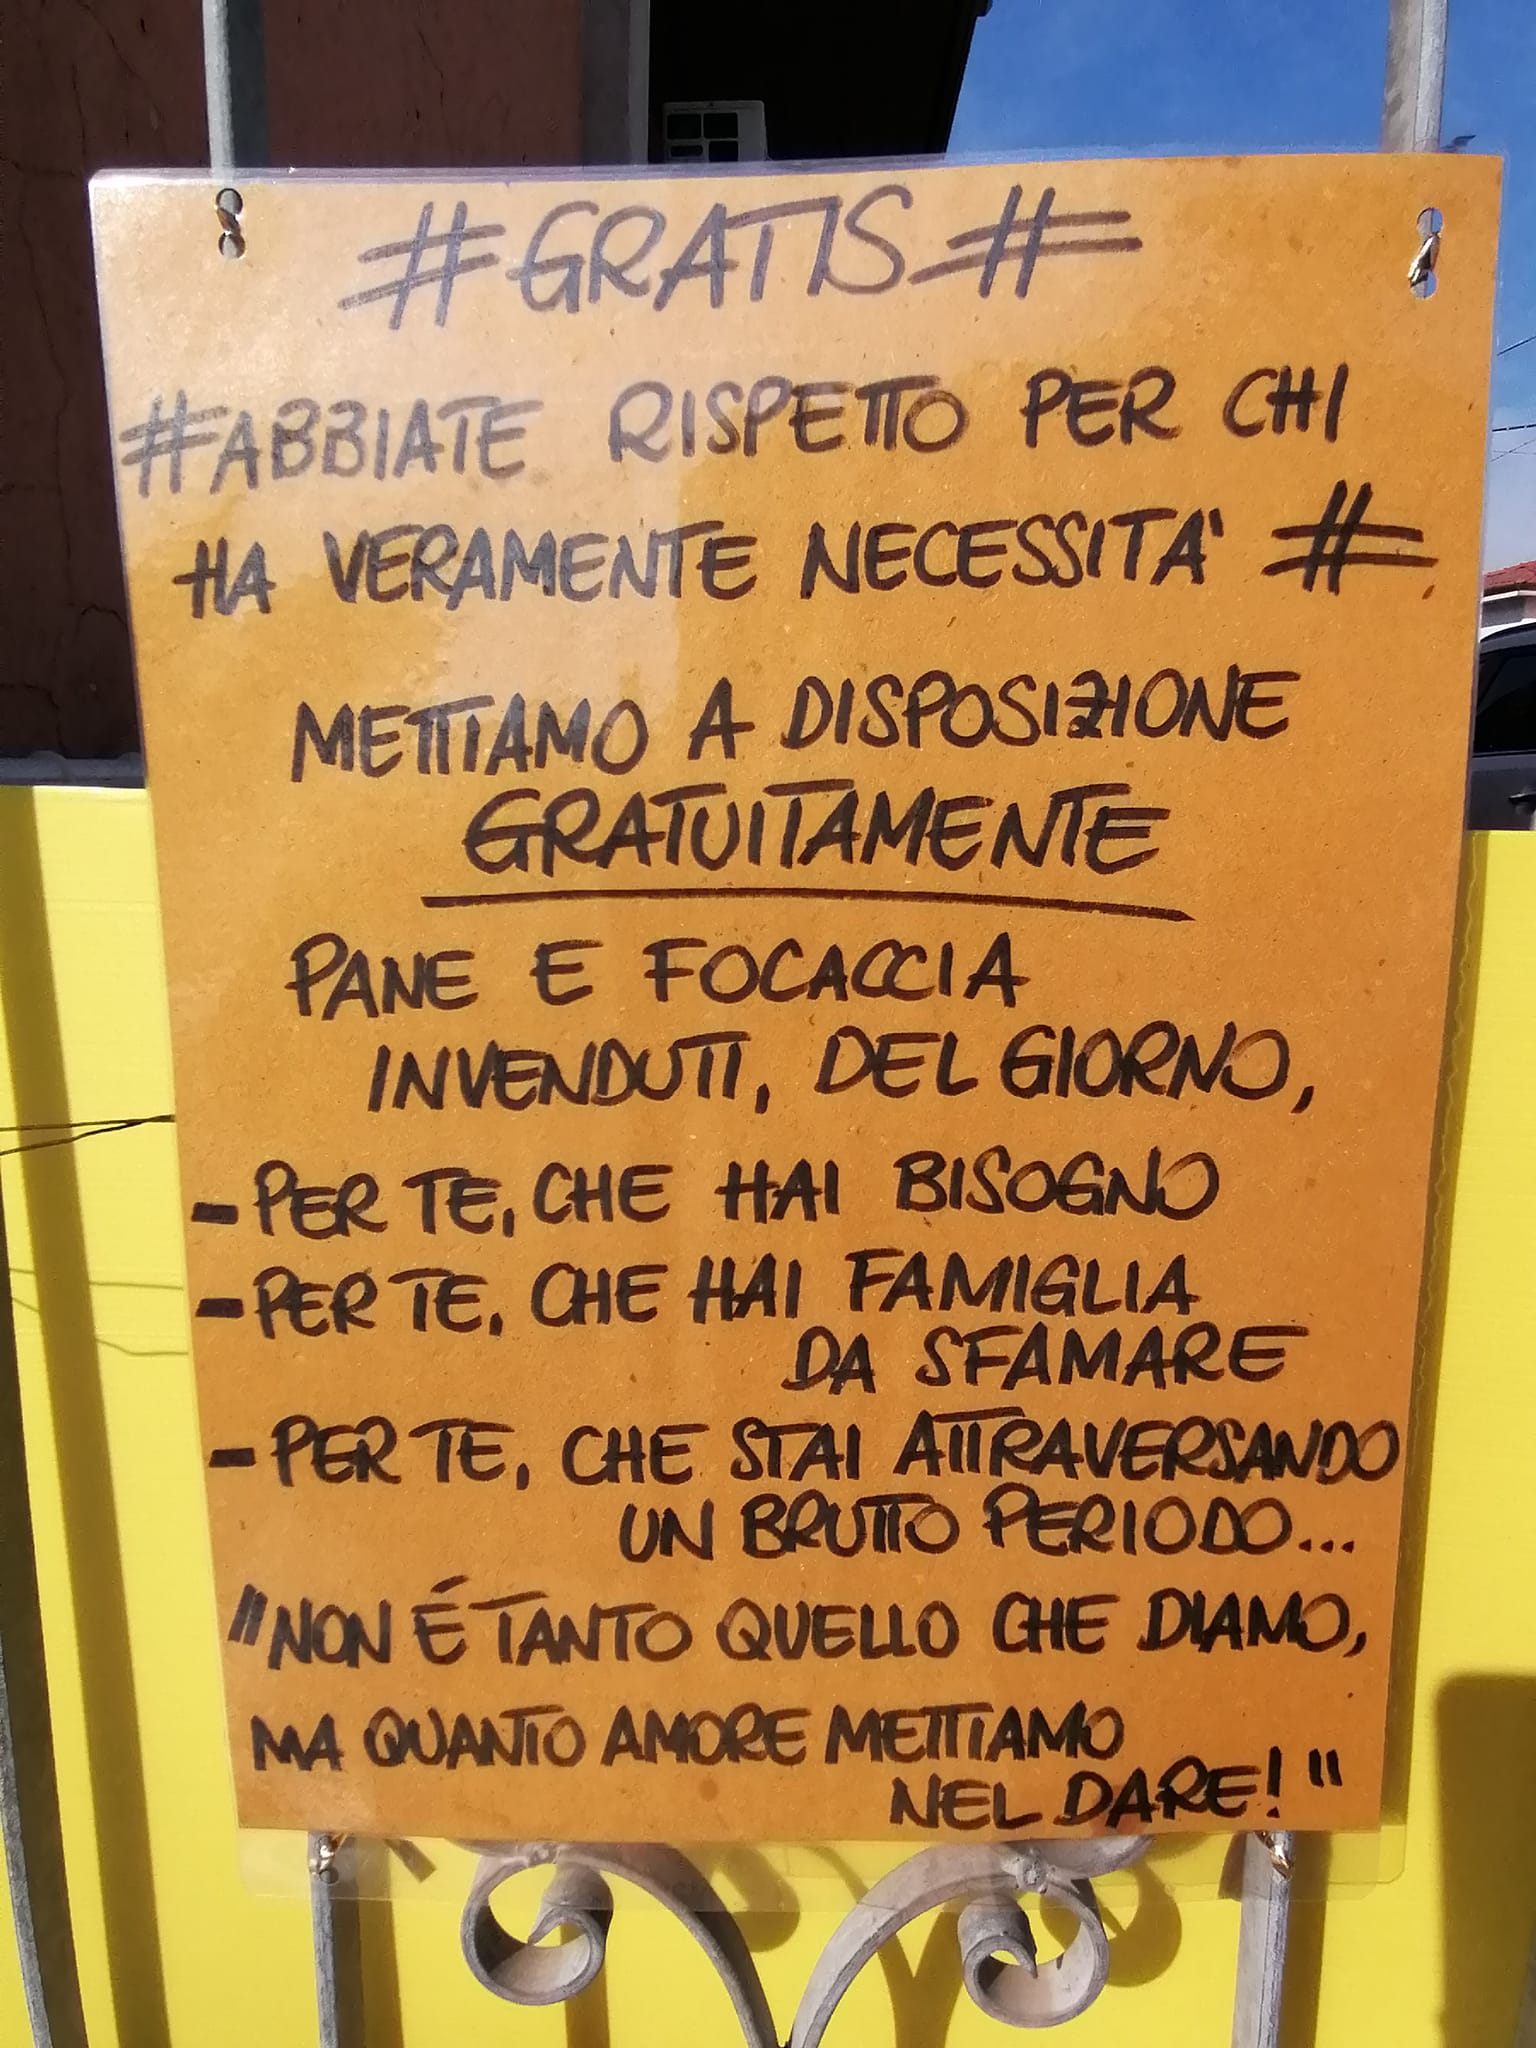 #GRATIS#
#ABBIATE RISPETTO PER CHI
HA VERAMENTE NECESSITA' #
METTIAMO A DISPOSIZIONE
GRATUITAMENTE
PANE E FOCACCIA
INVENDUTI, DEL GIORNO,
-PER TE, CHE HAI BISOGNO
-PER TE, CHE HAI FAMIGLIA
DA SFAMARE
-PER TE, CHE STAI ATTRAVERSANDO
UN BRUTTO PERIODO...
"NON É TANTO QUELLO CHE DIAMO,
MA QUANTO AMORE METTIAMO
NEL DARE!"